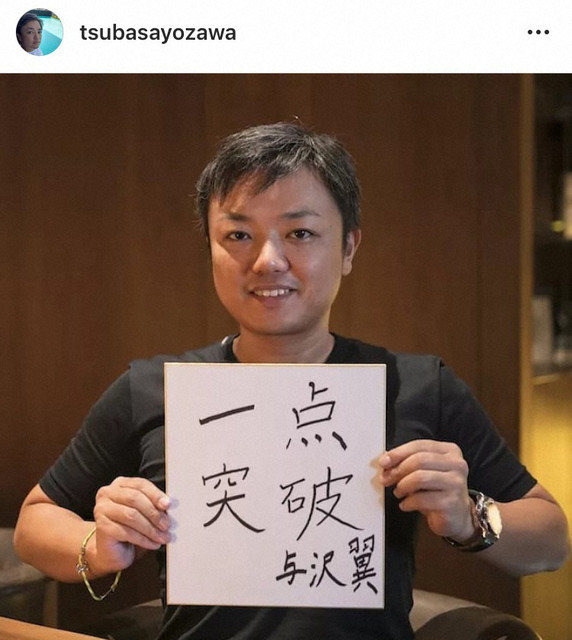 tsubasayozawa
一点
突破
与沢翼